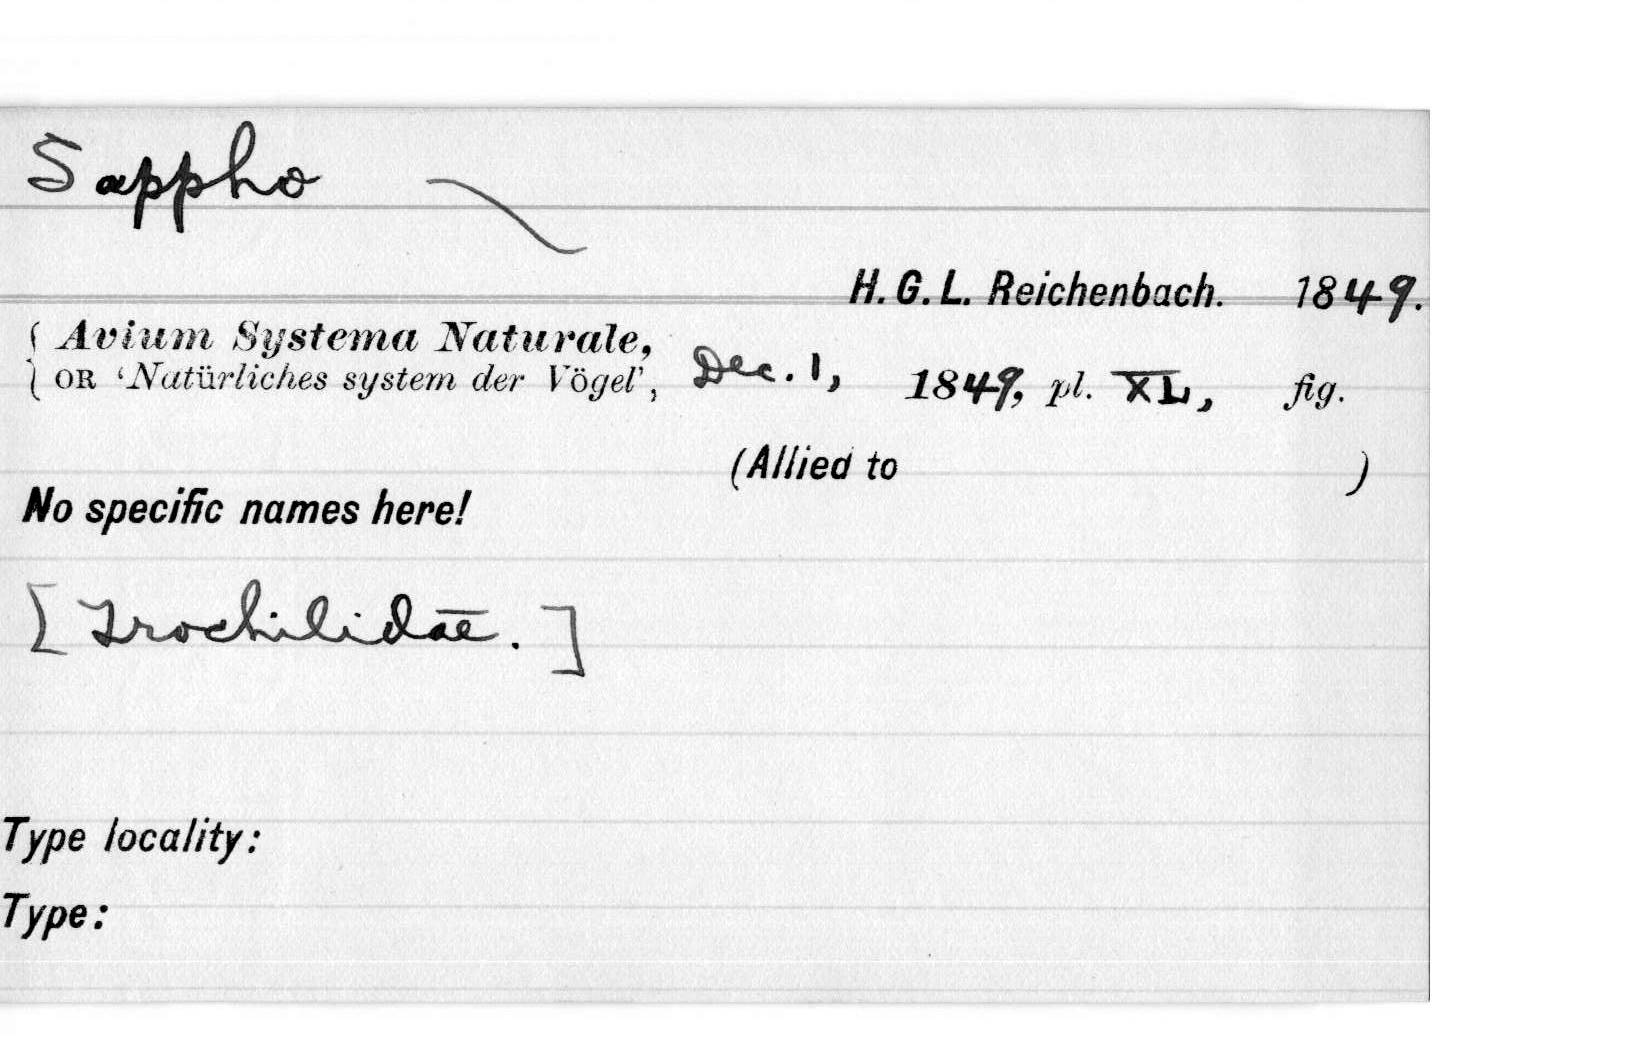 Sappho
H. G. L. Reichenbach. 1849.
{ Avium Systema Naturale,
} OR 'Natürliches system der Vögel', Dec. 1, 1849, pl. XL, fig.
(Allied to )
No specific names here!
[Trochilidae.]
Type locality:
Type: